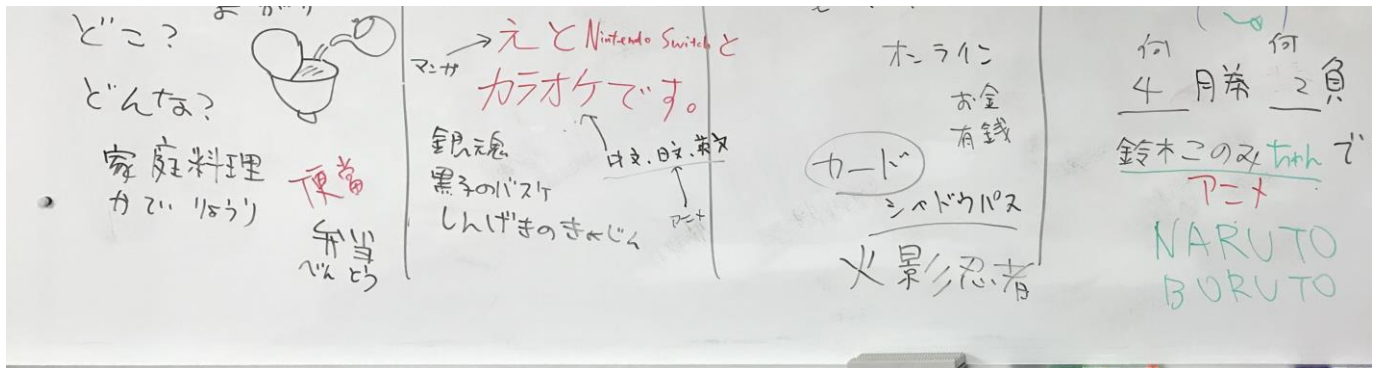 どこ?
どんな?
家庭料理
かてい りょうり
便當
弁当
べんとう
マンガ
えとNintendo Switchと
カラオケです。
銀魂
黒子のバスケ
しんげきのきょじん
中文、日文、英文
アニメ
オンライン
お金
有銭
カード
シャドウバス
火影忍者
何 何
4 月券 2 負
鈴木このみちゃんで
アニメ
NARUTO
BORUTO